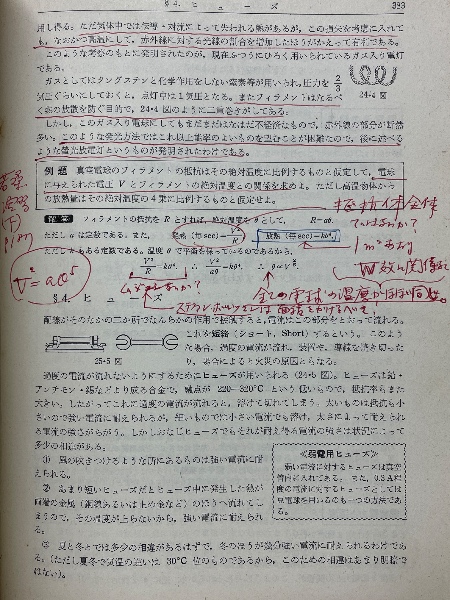 §4. ヒューズ 383
用し得る。ただ気体中では伝導・対流によって失われる熱があるが、この損失を考慮に入れて
も、なおかつ高温にして、赤外線に対する光線の割合を増加したほうがかえって有利である。
このような考慮のもとに発明されたのが、現在ふつうにひろく用いられているガス入り電灯
である。
ガスとしてはタングステンと化学作用をしない窒素等が用いられ、圧力を 2/3
気圧ぐらいにしておくと、点灯中は1気圧となる。またフィラメントはなるべ
く熱の放散を防ぐ目的で、24・4 図のように二重巻きがしてある。
24・4 図
しかし、このガス入り電球にしてもまだまだはなはだ不経済なもので、赤外線の部分が断然
多い。このような発光方法ではこれ以上能率のよいものを望むことが困難なので、後に述べる
ような螢光放電灯というものが発明されたわけである。
例題 真空電球のフィラメントの抵抗はその絶対温度に比例するものと仮定して、電球
に与えられた電圧 V とフィラメントの絶対温度との関係を求めよ。ただし高温物体から
の放熱量はその絶対温度の4乗に比例するものと仮定せよ。
解答 フィラメントの抵抗を R とすれば、絶対温度を θ として、 R=aθ.
ただし a は定数である。また、 発熱(毎sec)=V²/R 放熱(毎sec)=kθ⁴.
ただし k もある定数である。温度 θ で平衡を保っているのであるから、
V²/R=kθ⁴. ∴ V²/aθ=kθ⁴. ∴ θ∝V^(2/5).
抵抗体全体
ではないか?
1m²あたり
V²=aθ⁵
ムジュンあるか?
W数に関係なく
全ての電球の温度がほぼ同じ
ステファン・ボルツマンでは面積をかけるべき!
§4. ヒューズ
配線がそのたかの二か所でなんらかの作用で接続すると、電流はこの部分をとおって流れる。
これを短絡(ショート、Short)するという。このよう
な場合、過度の電流が流れ、装置や、導線を焼き切った
り、場合によると火災の原因となる。
25・5 図
過度の電流が流れないようにするためにヒューズが用いられる (24・5 図)。ヒューズは鉛・
アンチモン・錫などより成る合金で、融点が 220~320°C という低いもので、抵抗率もまた
大きい。したがってこれに過度の電流が流れると、溶けて切れてしまう。太いものは抵抗も小
さいので強い電流に耐えられるが、細いものでは小さい電流でも溶け、太さによって耐えられ
る電流の強さがちがう。しかしおなじヒューズでもそれが耐え得る電流の強さは状況によって
多少の相違がある。
① 風の吹きつけるような所にあるものは強い電流に耐
えられる。
② あまり短いヒューズだとヒューズ中に発生した熱が
両端の金属(銅線あるいは止め金など)のほうへ流れてし
まうので、その温度が上らないから、強い電流に耐えられ
る。
③ 夏と冬とでは多少の相違があるはずで、冬のほうが幾分強い電流に耐えられるわけであ
る。(ただし夏冬で気温の差は 30°C 位のものであるから、このための相違はあまり明瞭で
はない)。
≪弱電用ヒューズ≫
弱い電流に対するヒューズは真空
管内に入れてある。また、0.3A程
度の電流に対するヒューズとしては
豆電球を用いるのも一つの方法であ
る。